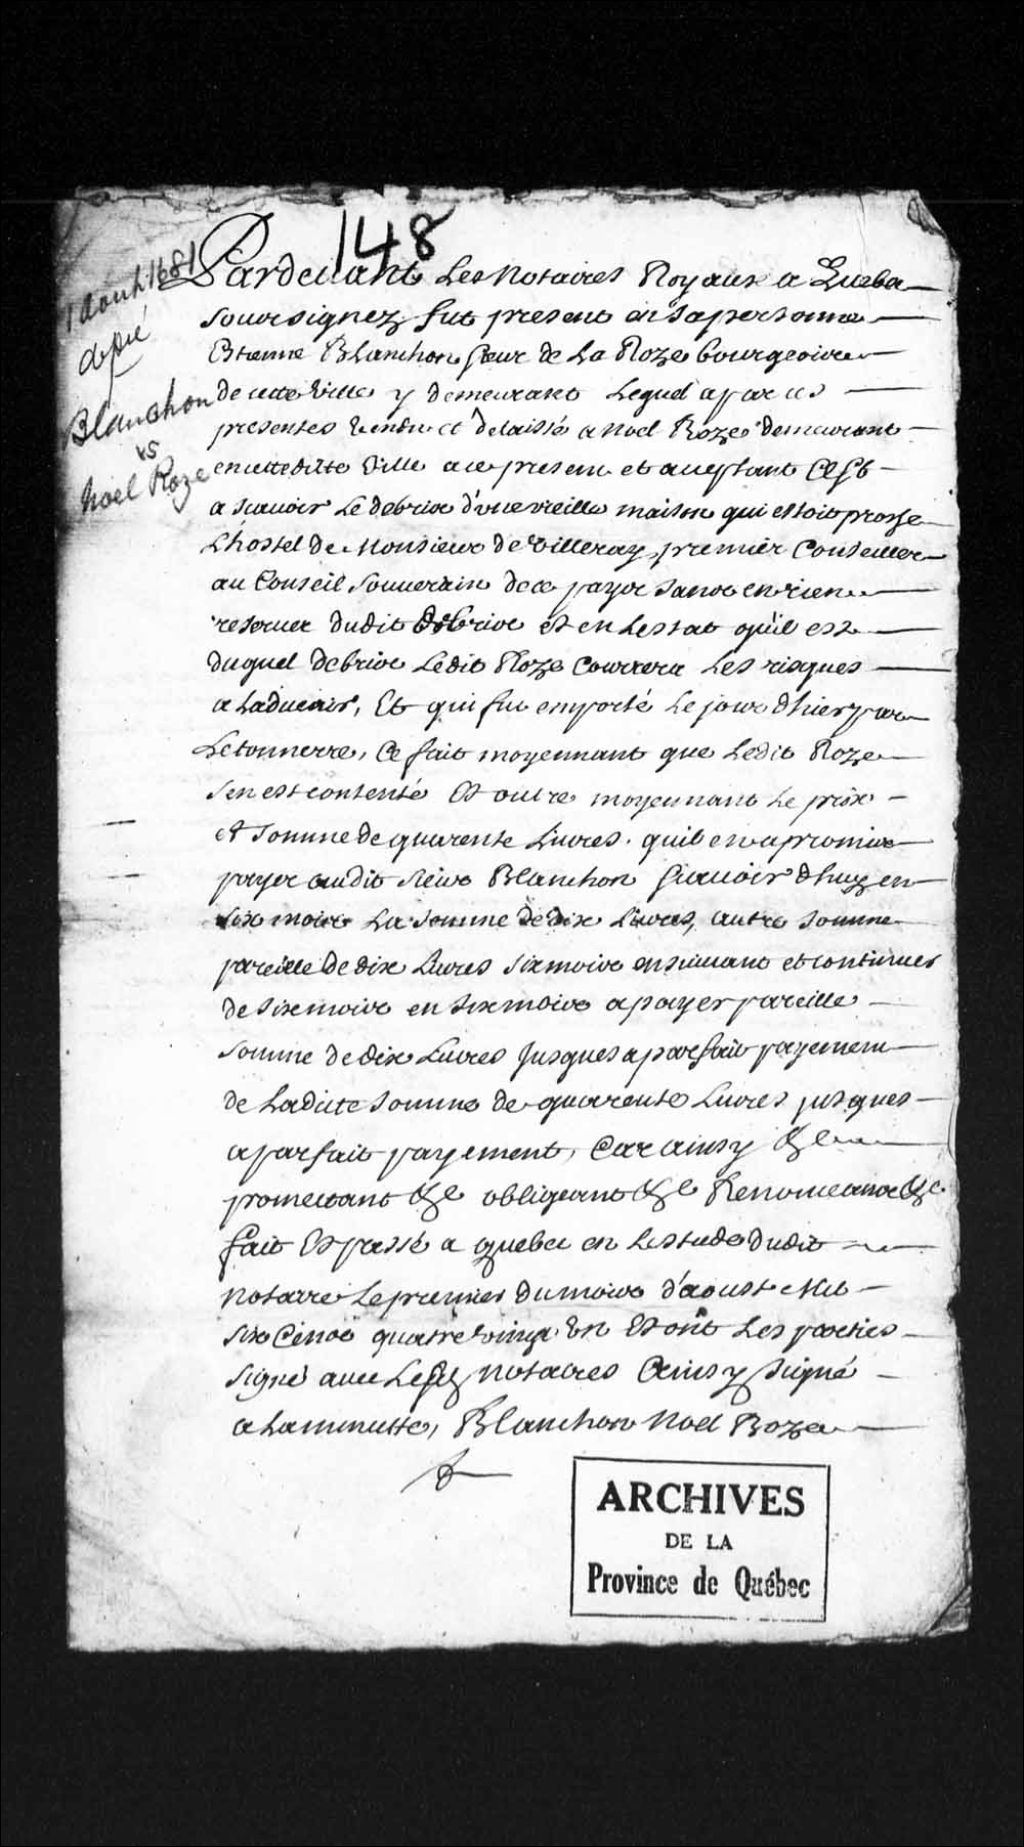 148
1 aouh 1681
Blanchon
vs
Noel Roze
Pardeuant Les Notaires Royaux a Quebec
soursignez fut present en sa personne
Etienne Blanchon sieur de La Roze bourgeois
de cette Ville y demeurant Lequel a par ces
presentes Vendu et delaissé a Noel Roze demeurant
en cettedite Ville a ce present et acceptant C'est
a scauoir Le debris d'vne vieille maison qui estoit proche
L'hostel de Monsieur de Villeray, premier Conseiller
au Conseil Souuerain de ce payis sans en rien
reseruer dudit debris et en L'estat qu'il est
duquel debris Ledit Roze Courrera Les risques
a L'aduenir, Et qui fut emporté Le jour d'hier par
Le tonnerre, Ce fait moyennant que Ledit Roze
s'en est contenté Et outre moyennant Le prix
et somme de quarente Liures. qu'il en a promis
payer audit sieur Blanchon scauoir d'huy en
six mois La somme de dix Liures, autre somme
pareille de dix Liures six mois ensuiuant et continuer
de six mois en six mois a payer pareille
somme de dix Liures Jusques a parfait payement
de Ladite somme de quarente Liures jusques
a parfait payement, Car ainsy &c
promettant &c obligeant &c Renonceant &c
fait Et passé a Quebec en L'estude dudit
notaire Le premier du mois d'aoust Mil
six Cens quatre vingt Vn Et ont Les parties
signé auec Lesdits notaires Ainsy signé
a La minutte, Blanchon Noel Roze
ARCHIVES
DE LA
Province de Québec